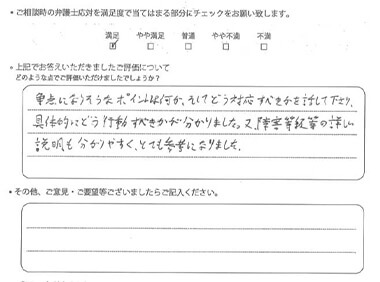 ・ご相談時の弁護士応対を満足度で当てはまる部分にチェックをお願い致します。
満足 やや満足 普通 やや不満 不満
・上記でお答えいただきましたご評価について
どのような点でご評価いただけましたでしょうか?
争点になりそうなポイントは何か、そしてどう対応すべきかを話して下さり、
具体的にどう行動すべきかが分かりました。又、障害等級等の詳しい
説明も分かりやすく、とても参考になりました。
・その他、ご意見・ご要望等ございましたらご記入ください。